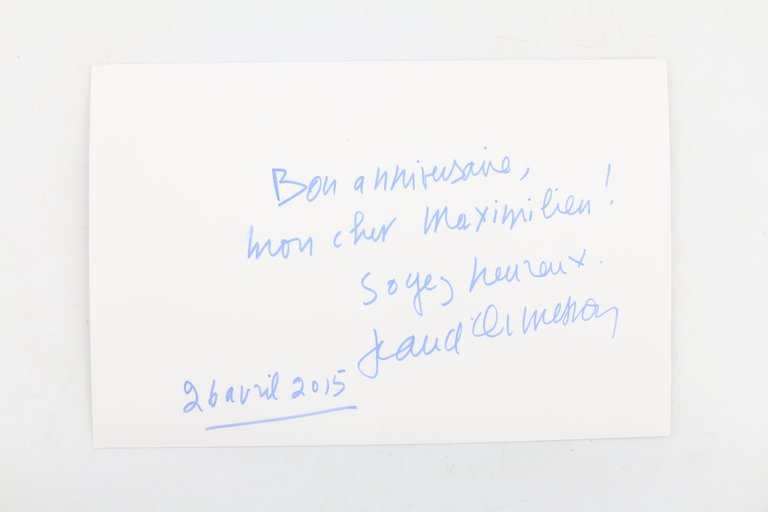 Bon anniversaire,
mon cher Maximilien !
Soyez heureux.
Jean d'Ormesson
26 avril 2015